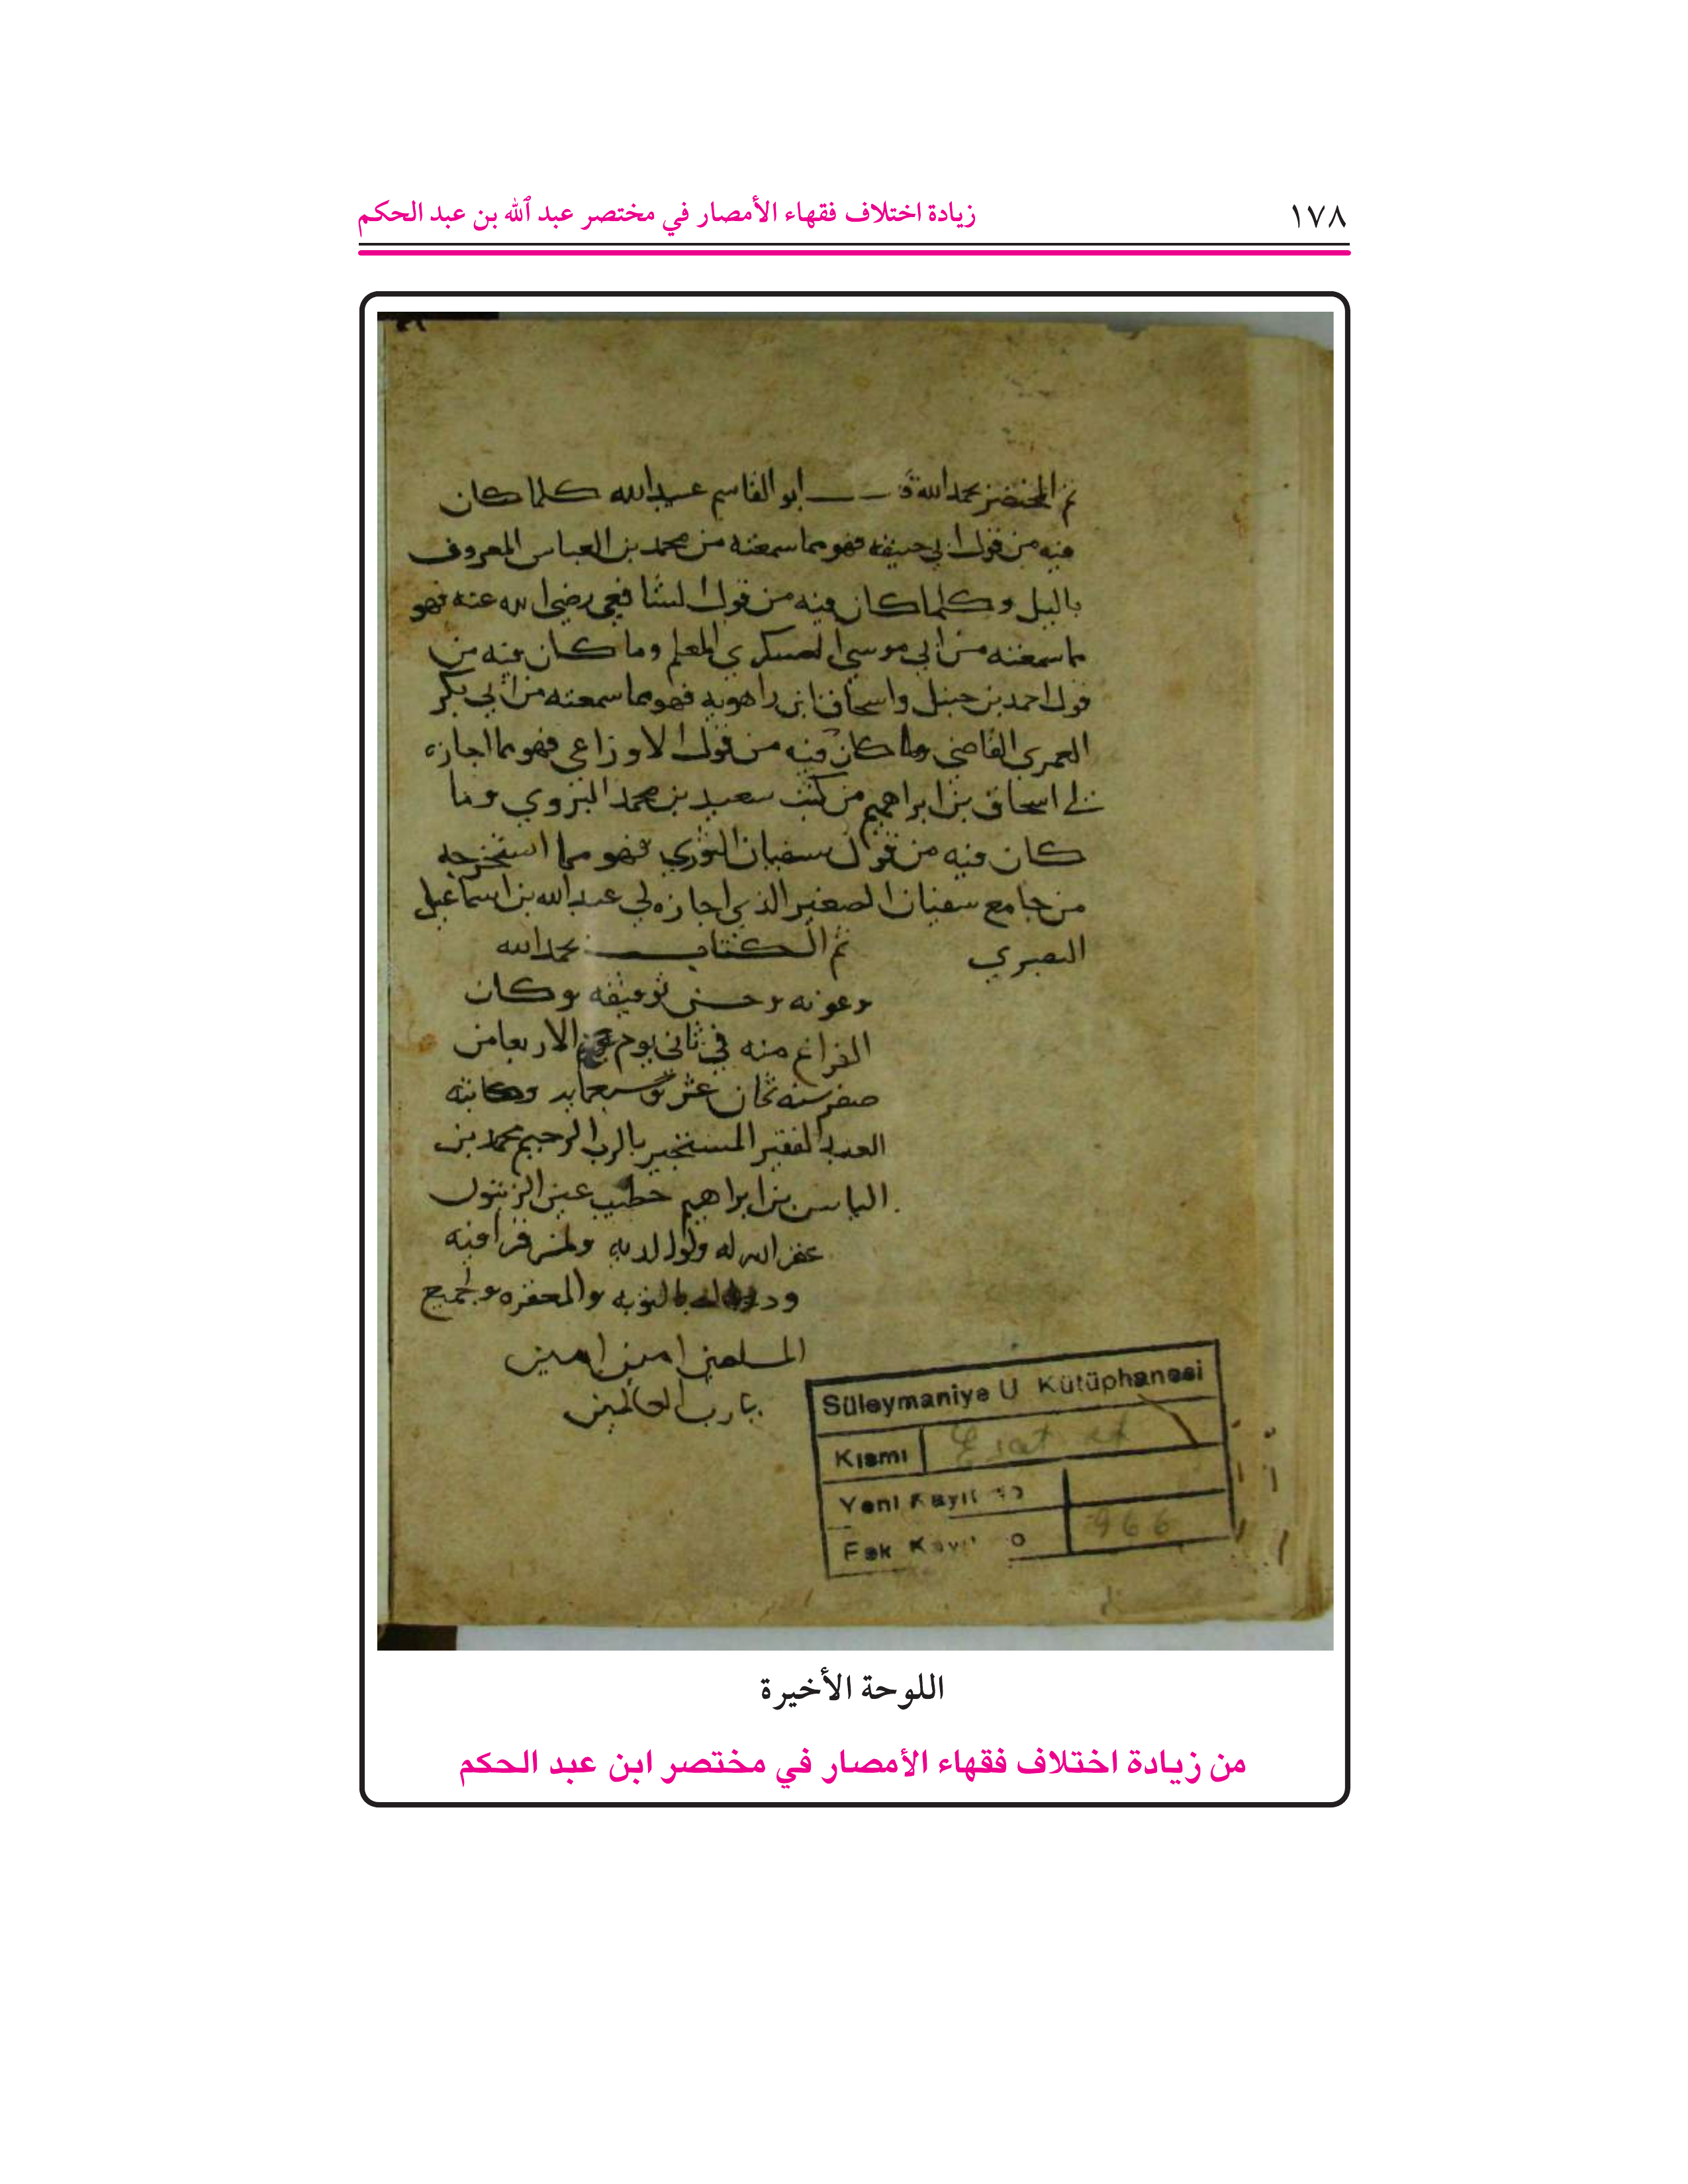 زيادة اختلاف فقهاء الأمصار في مختصر عبد ٱلله بن عبد الحكم
١٧٨
تم المختصر بحمد الله قال ابو القاسم عبيد الله كلما كان
فيه من قول ابي حنيفه فهو مما سمعته من محمد بن العباس المعروف
بالبل وكلما كان فيه من قول الشافعي رضي الله عنه فهو
مما سمعته من ابي موسى العسكري المعلم وما كان فيه من
قول احمد بن حنبل واسحاق ابن راهويه فهو مما سمعته من ابي بكر
العمري القاضي وما كان فيه من قول الاوزاعي فهو مما اجازه
لي اسحاق بن ابراهيم من كتب سعيد بن محمد البزوي وما
كان فيه من قول سفيان الثوري فهو مما استخرجه
من جامع سفيان الصغير الذي اجازه لي عبد الله بن اسماعيل
البصري
تم الكتاب بحمد الله
وعونه وحسن توفيقه وكان
الفراغ منه في ثاني يوم الاربعا من
صفر سنه ثمان عشر وسبعمايه وكاتبه
العبد الفقير المستجير بالرب الرحيم محمد بن
الياس بن ابراهيم خطيب عين الزيتون
غفر الله له ولوالديه ولمن قرا فيه
ودعا له بالتوبه والمغفره ولجميع
المسلمين امين امين
يا رب العالمين
Süleymaniye U Kütüphanesi
Kısmı Esat ef
Yeni Kayıt No
Esk Kayıt No 966
اللوحة الأخيرة
من زيادة اختلاف فقهاء الأمصار في مختصر ابن عبد الحكم